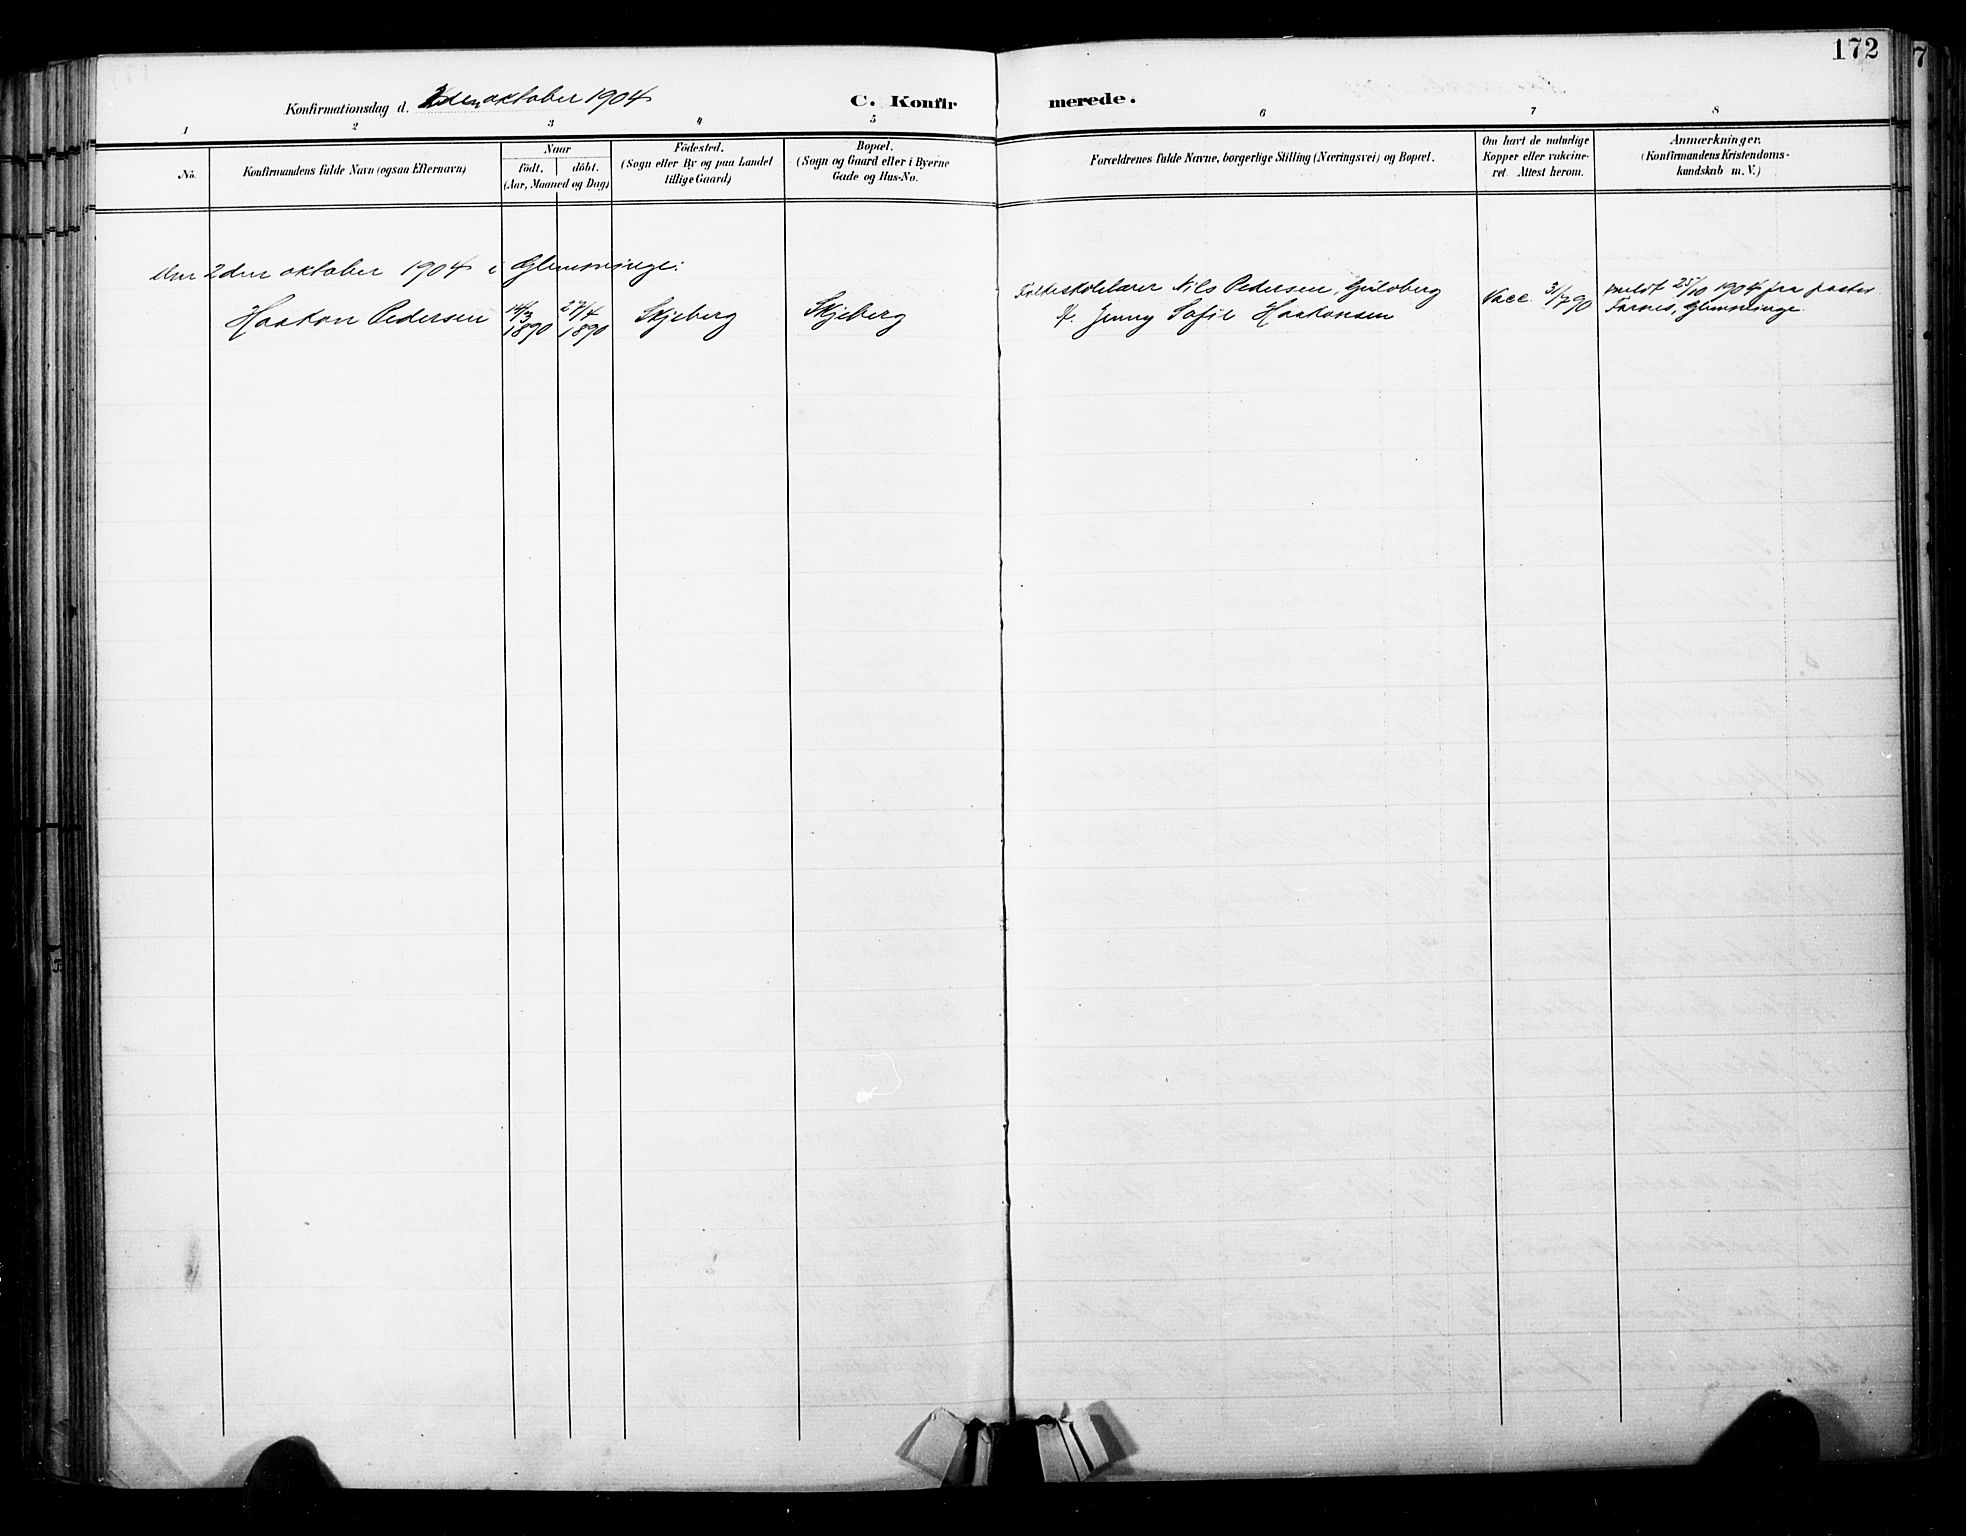 172
Konfirmationsdag d. 2den oktober 1904
C. Konfir merede.
1 2 3 4 5 6 7 8
No.
Konfirmandens fulde Navn (ogsaa Efternavn)
Naar
født. døbt.
(Aar, Maaned og Dag)
Fødested.
(Sogn eller By og paa Landet
tillige Gaard)
Bopæl.
(Sogn og Gaard eller i Byerne
Gade og Hus-No.
Forældrenes fulde Navne, borgerlige Stilling (Næringsvei) og Bopæl.
Om havt de naturlige
Kopper eller vakcine-
ret. Attest herom.
Anmærkninger.
(Konfirmandens Kristendoms-
kundskab m. V.)
Den 2den oktober 1904 i Glemminge:
Haakon Pedersen 14/3 1890 27/4 1890 Skjeberg Skjeberg
Folkeskolelærer Nils Pedersen, Guloberg
H. Jenny Sofie Haakonsen
Vacc. 3/7 90
meldt 25/10 1904 fra pastor
Farnes, Glemminge.